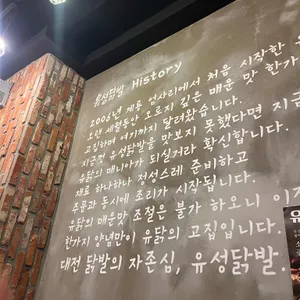 유성닭발 History
2006년 계룡 엄사리에서 처음 시작한
오랜 세월동안 오로지 깊은 매운 맛 한가
고집하며 여기까지 달려왔습니다.
지금껏 유성닭발을 맛보지 못했다면 지금
유닭의 매니아가 되실거라 확신합니다.
재료 하나하나 정성스레 준비하고
주문과 동시에 조리가 시작됩니다.
유닭의 매운맛 조절은 불가 하오니 이
한가지 양념만이 유닭의 고집입니다.
대전 닭발의 자존심, 유성닭발.